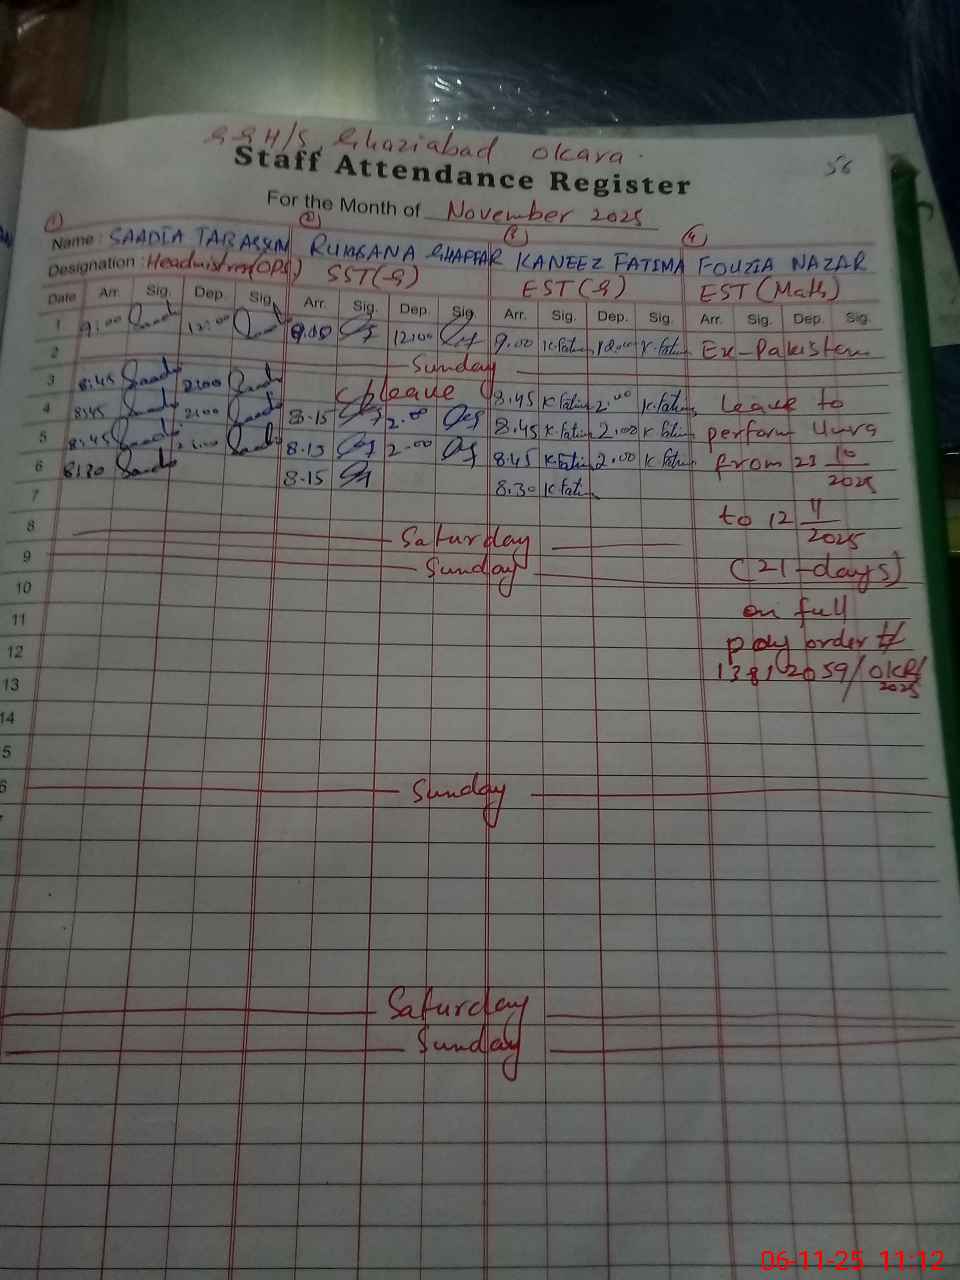 G G H/S, Ghaziabad Okara.
Staff Attendance Register
56
For the Month of November 2025
1 2 3 4
Name: SAADIA TABASSUM RUKHSANA GHAFFAR KANEEZ FATIMA FOUZIA NAZAR
Designation: Headmistress (OPS) SST(G) EST(G) EST (Math)
Date Arr. Sig. Dep. Sig. Arr. Sig. Dep. Sig. Arr. Sig. Dep. Sig. Arr. Sig. Dep. Sig.
1 9:00 12:00 9.00 12:00 9.00 K.Fatima 12.00 K.Fatima Ex-Pakistan
2 Sunday
3 8:45 2:00 leave 8.45 K.Fatima 2.00 K.Fatima Leave to
4 8:45 2:00 8-15 2.00 8.45 K.Fatima 2.00 K Fatima perform Umra
5 8:45 2:00 8.15 2-00 8.45 K.Fatima 2.00 K Fatima from 23 10/2025
6 8:30 8-15 8.30 K.Fatima
7 to 12 11/2025
8 Saturday
9 Sunday (21-days)
10 on full
11 pay order #
12 13812059/OKR/2025
13
14
5
6 Sunday
Saturday
Sunday
06-11-25 11:12